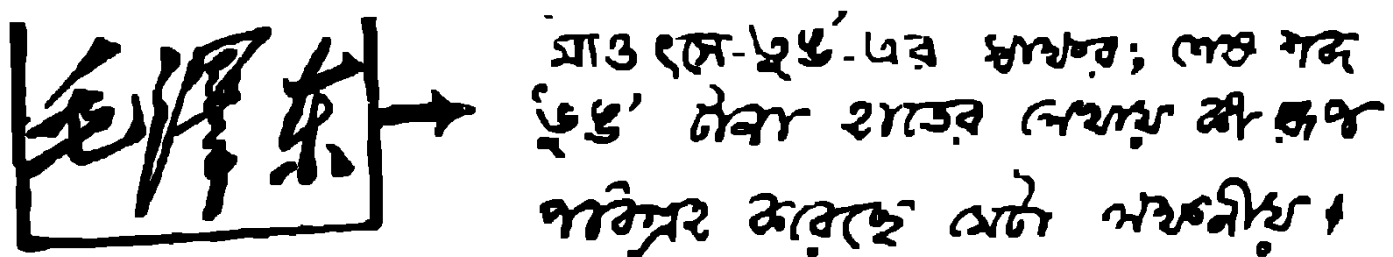 毛澤东
মাও ৎসে-তুঙ-এর স্বাক্ষর; শেষ শব্দ
'তুঙ' টানা হাতের লেখায় কী রূপ
পরিগ্রহ করেছে সেটা লক্ষণীয়।